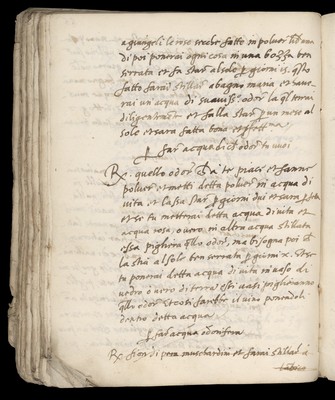 agiungeli le rose secche fatto in polver
di poi ponerai ogni cosa in una bozza ben
serrata et fa star al sole p giorni is. q̃sto
fatto farai stillar a bagno maria et have
rai un acqua di suaviss.º odor la q̃l terrai
diligentemẽt et falla star p un mese al
sole et sara fatta bona et
p far acqua d'ogni odor tu voi
Rx. quello odor ch' a te piace et fanne
polver et metti detta polver in acqua di
vita et lassa star p giorni dui et sara
et se tu metterai detta acqua di vita et
acqua rosa overo in altra acqua stillata
essa pigliera q̃llo odor, ma bisogna poi
lassa al sole ben serrata p giorni x. Et se
tu ponerai detta acqua di vita in vaso di
vedro o vero di terra assai pigliaranno
q̃llo odor Et cosi sarebbe il vino ponendoli
dentro detta acqua
p far acqua odorifera
Rx fior di pera muschardini et farai stillar à